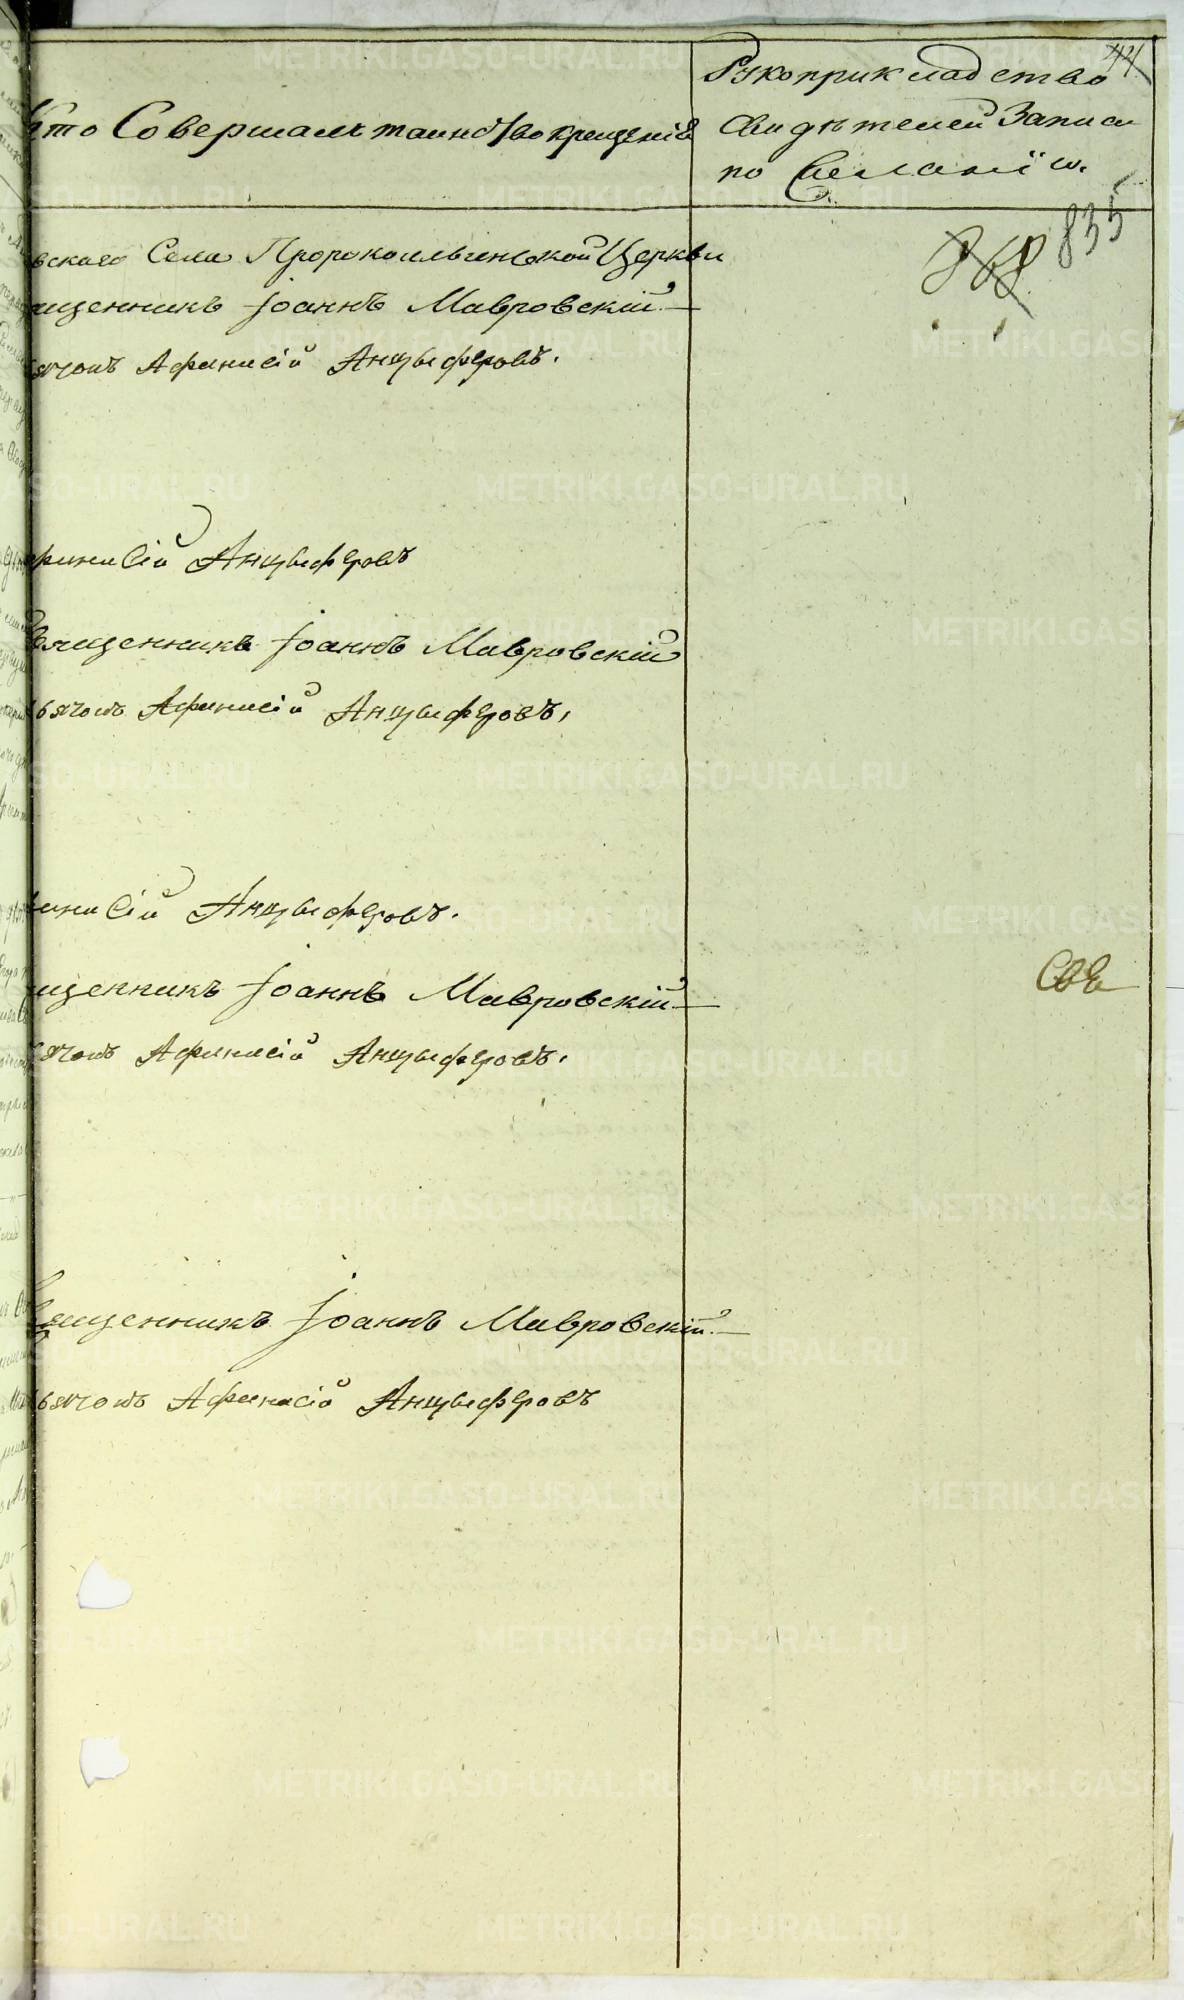 44
Кто Совершалъ таинство крещенія
Рукоприкладство
Свидѣтелей Записи
по Желанію.
835
868
вскаго Села Пророкоильинской Церкви
щенникъ Іоаннъ Мавровскій
ячокъ Афанасій Анцыферовъ.
фанасій Анцыферовъ
Священникъ Іоаннъ Мавровскій
ьячокъ Афанасій Анцыферовъ,
анасій Анцыферовъ.
щенникъ Іоаннъ Мавровскій
ячокъ Афанасій Анцыферовъ.
Священникъ Іоаннъ Мавровскій
ьячокъ Афанасій Анцыферовъ
METRIKI.GASO-URAL.RU